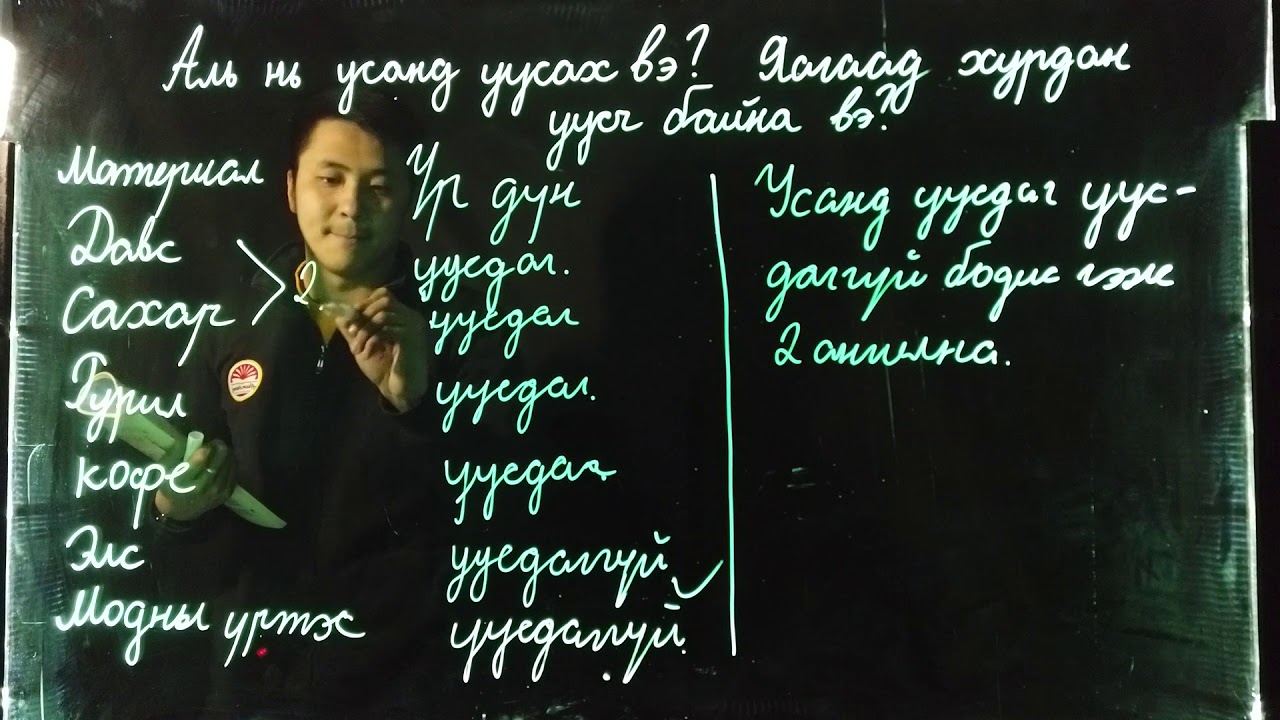 Аль нь усанд уусах вэ? Яагаад хурдан
уусч байна вэ?
Материал Үр дүн
Давс уусдаг.
Сахар 2 уусдаг
Гурил уусдаг.
кофе уусдаг
Элс уусдаггүй
Модны үртэс уусдаггүй.
Усанд уусдаг уус-
даггүй бодис гэж
2 ангилна.